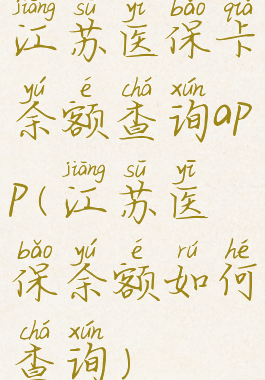 jiāng sū yī bǎo qiǎ
江苏医保卡
yú é chá xún
余额查询ap
jiāng sū yī
p(江苏医
bǎo yú é rú hé
保余额如何
chá xún
查询)